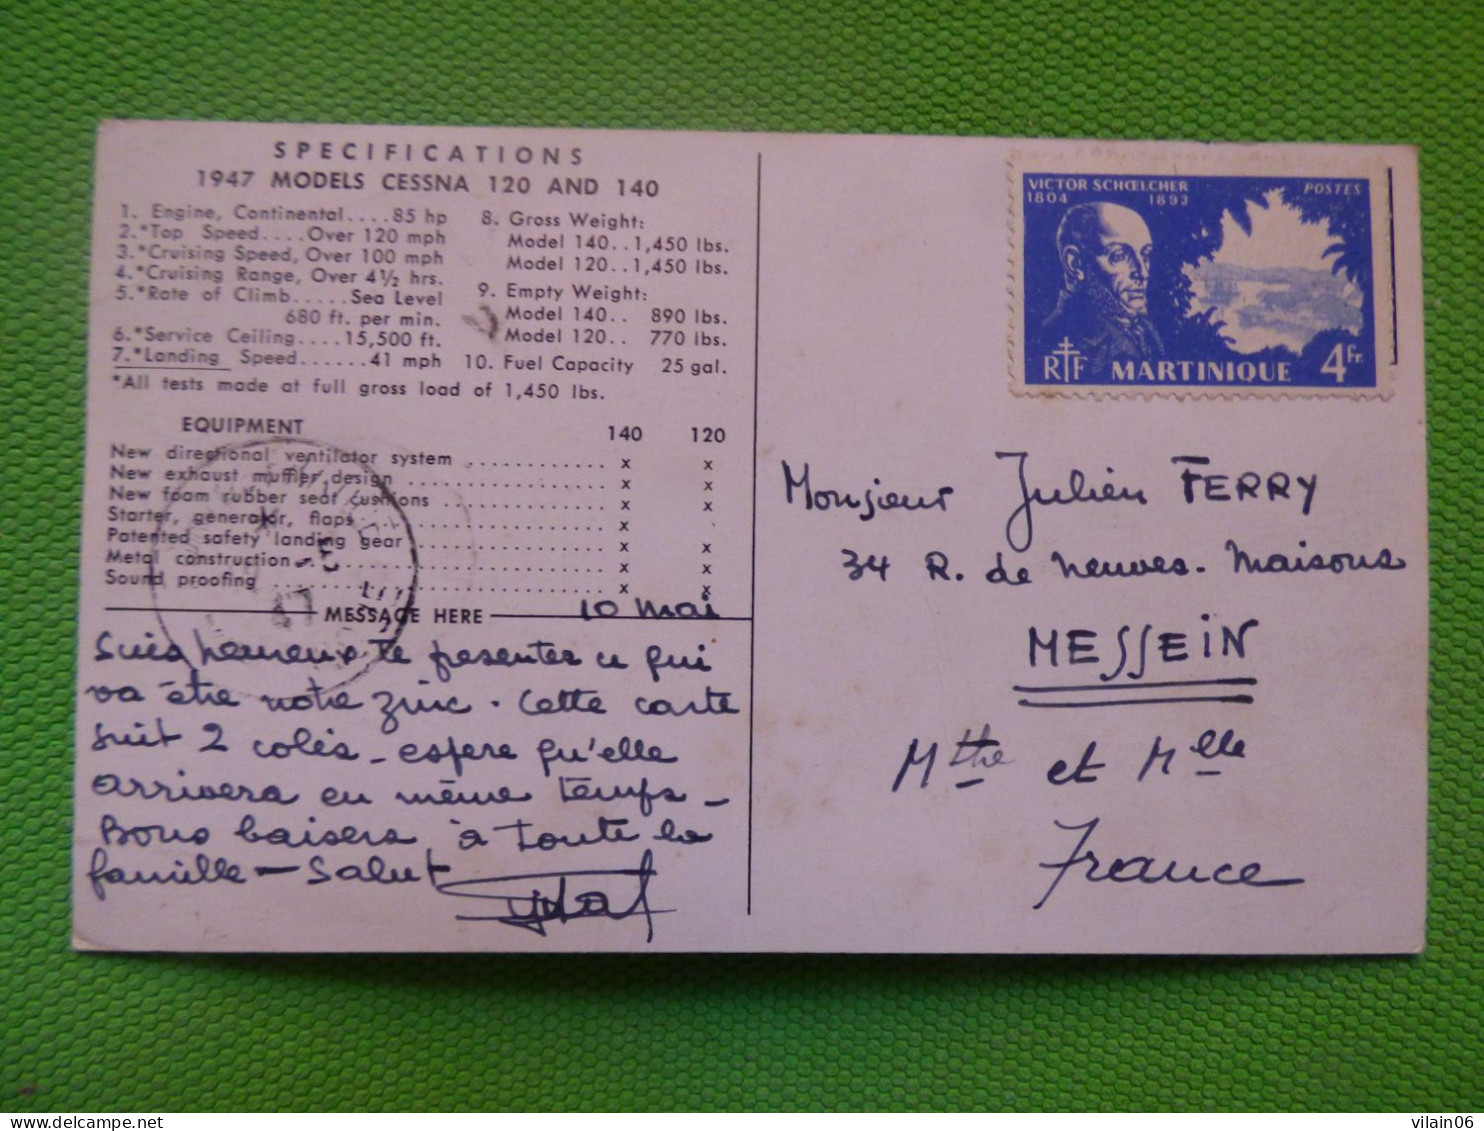 SPECIFICATIONS
1947 MODELS CESSNA 120 AND 140
1. Engine, Continental....85 hp
2.*Top Speed....Over 120 mph
3.*Cruising Speed, Over 100 mph
4.*Cruising Range, Over 4½ hrs.
5.*Rate of Climb.....Sea Level
680 ft. per min.
6.*Service Ceiling....15,500 ft.
7.*Landing Speed......41 mph
8. Gross Weight:
Model 140..1,450 lbs.
Model 120..1,450 lbs.
9. Empty Weight:
Model 140.. 890 lbs.
Model 120.. 770 lbs.
10. Fuel Capacity 25 gal.
*All tests made at full gross load of 1,450 lbs.
EQUIPMENT 140 120
New directional ventilator system x x
New exhaust muffler design x x
New foam rubber seat cushions x x
Starter, generator, flaps x
Patented safety landing gear x x
Metal construction x x
Sound proofing x x
MESSAGE HERE
10 mai
Suis heureux te presenter ce qui
va être notre zinc. Cette carte
suit 2 colis - espere qu'elle
arrivera en même temps -
Bons baisers à toute la
famille - Salut
VICTOR SCHŒLCHER POSTES
1804 1893
RF MARTINIQUE 4Fr.
Monsieur Julien FERRY
34 R. de neuves. Maisons
MESSEIN
Mthe et Mlle
France
vilain06